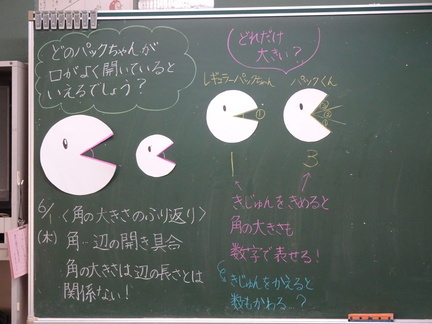 どのパックちゃんが
口がよく開いていると
いえるでしょう？
どれだけ
大きい？
レギュラーパックちゃん
パックくん
①
②
③
①
1
3
6/1 〈角の大きさのふり返り〉
(木) 角…辺の開き具合
角の大きさは辺の長さとは
関係ない！
きじゅんをきめると
角の大きさも
数字で表せる！
きじゅんをかえると
数もかわる…？